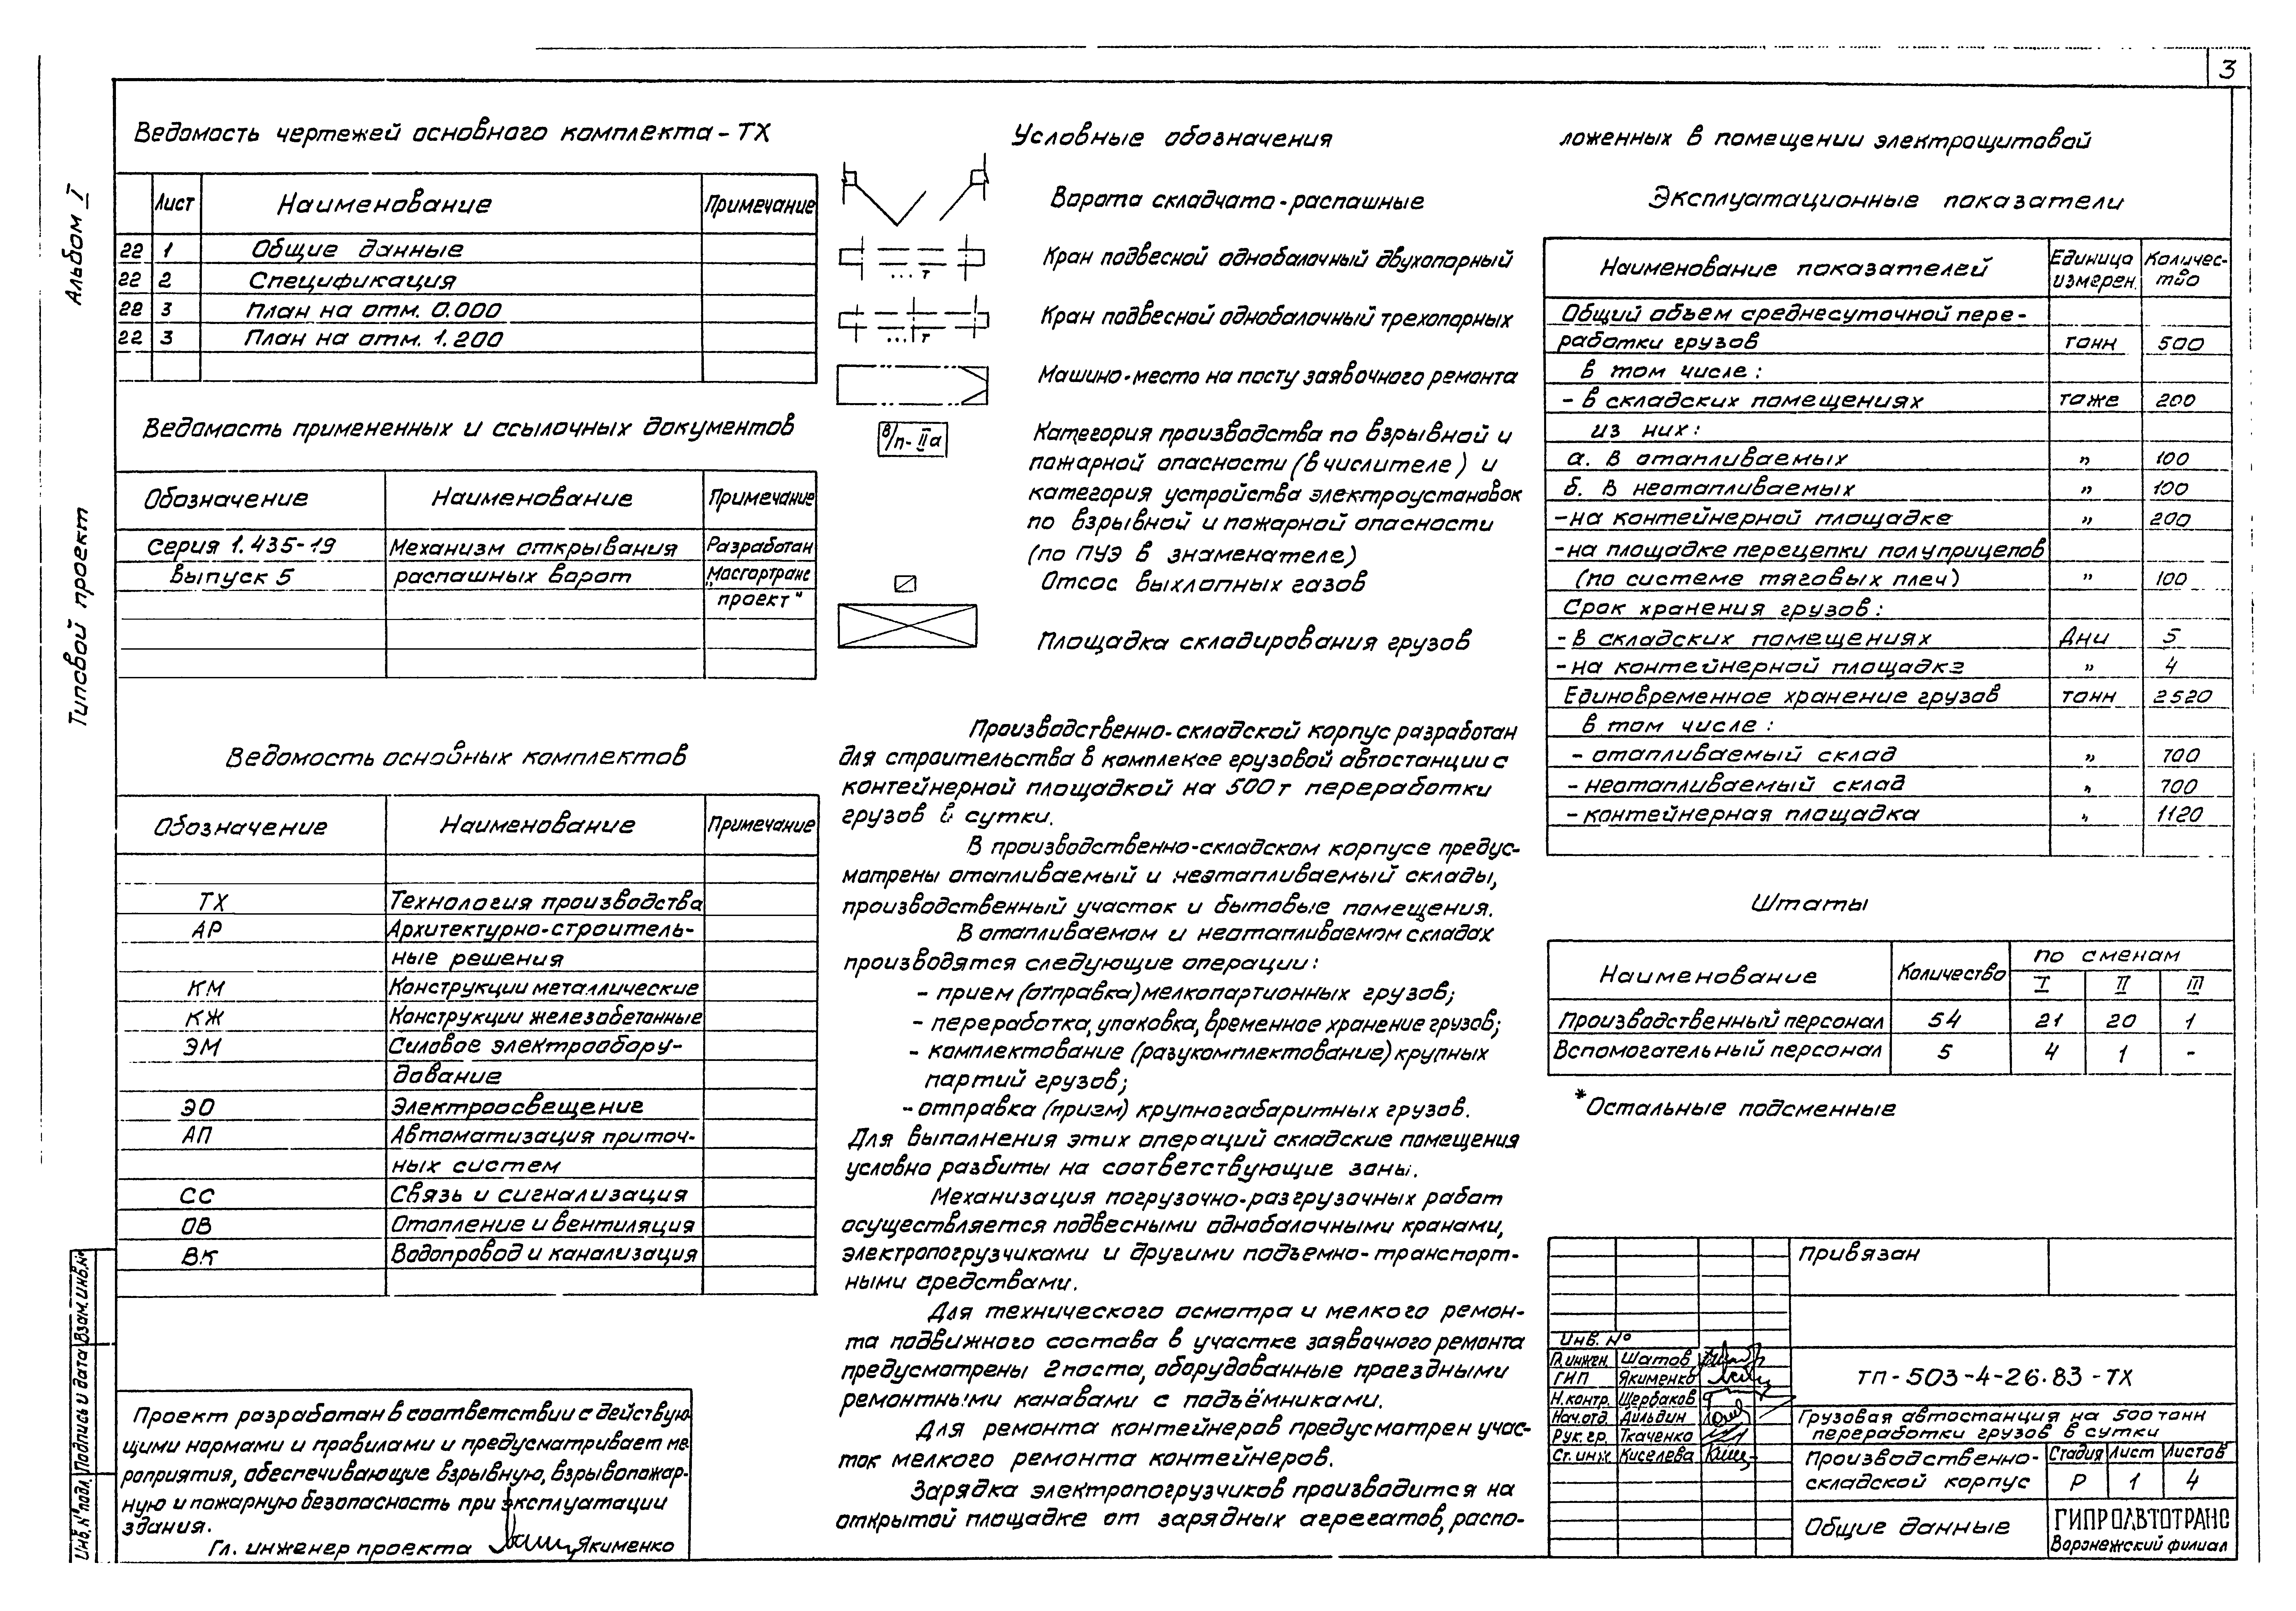 3
Альбом I
Типовой проект
Ведомость чертежей основного комплекта - ТХ
Лист Наименование Примечание
22 1 Общие данные
22 2 Спецификация
22 3 План на отм. 0.000
22 3 План на отм. 1.200
Ведомость примененных и ссылочных документов
Обозначение Наименование Примечание
Серия 1.435-19 Механизм открывания Разработан
Выпуск 5 распашных ворот „Мосгортранс
проект"
Ведомость основных комплектов
Обозначение Наименование Примечание
ТХ Технология производства
АР Архитектурно-строитель-
ные решения
КМ Конструкции металлические
КЖ Конструкции железобетонные
ЭМ Силовое электрообору-
дование
ЭО Электроосвещение
АП Автоматизация приточ-
ных систем
СС Связь и сигнализация
ОВ Отопление и вентиляция
ВК Водопровод и канализация
Проект разработан в соответствии с действую-
щими нормами и правилами и предусматривает ме-
роприятия, обеспечивающие взрывную, взрывопожар-
ную и пожарную безопасность при эксплуатации
здания.
Гл. инженер проекта Якименко
Инв. № подл. Подпись и дата Взам. инв. №
Условные обозначения
Ворота складчато-распашные
...т Кран подвесной однобалочный двухопорный
...т Кран подвесной однобалочный трехопорных
Машино-место на посту заявочного ремонта
В/п-IIа Категория производства по взрывной и
пожарной опасности (в числителе) и
категория устройства электроустановок
по взрывной и пожарной опасности
(по ПУЭ в знаменателе)
Отсос выхлопных газов
Площадка складирования грузов
Производственно-складской корпус разработан
для строительства в комплексе грузовой автостанции с
контейнерной площадкой на 500 т переработки
грузов в сутки.
В производственно-складском корпусе предус-
матрены отапливаемый и неотапливаемый склады,
производственный участок и бытовые помещения.
В отапливаемом и неотапливаемом складах
производятся следующие операции:
- прием (отправка) мелкопартионных грузов;
- переработка, упаковка, временное хранение грузов;
- комплектование (разукомплектование) крупных
партий грузов;
- отправка (прием) крупногабаритных грузов.
Для выполнения этих операций складские помещения
условно разбиты на соответствующие зоны.
Механизация погрузочно-разгрузочных работ
осуществляется подвесными однобалочными кранами,
электропогрузчиками и другими подъемно-транспорт-
ными средствами.
Для технического осмотра и мелкого ремон-
та подвижного состава в участке заявочного ремонта
предусмотрены 2 поста, оборудованные проездными
ремонтными канавами с подъёмниками.
Для ремонта контейнеров предусмотрен учас-
ток мелкого ремонта контейнеров.
Зарядка электропогрузчиков производится на
открытой площадке от зарядных агрегатов, распо-
ложенных в помещении электрощитовой
Эксплуатационные показатели
Наименование показателей Единица измерен. Количес-тво
Общий объем среднесуточной пере-
работки грузов тонн 500
в том числе:
- в складских помещениях тоже 200
из них:
а. в отапливаемых " 100
б. в неотапливаемых " 100
- на контейнерной площадке " 200
- на площадке перецепки полуприцепов
(по системе тяговых плеч) " 100
Срок хранения грузов:
- в складских помещениях Дни 5
- на контейнерной площадке " 4
Единовременное хранение грузов тонн 2520
в том числе:
- отапливаемый склад " 700
- неотапливаемый склад " 700
- контейнерная площадка " 1120
Штаты
Наименование Количество по сменам
I II III
Производственный персонал 54 21 20 1
Вспомогательный персонал 5 4 1 -
*Остальные подсменные
Привязан
Инв. №
Гл.инжен. Шатов
ГИП Якименко
Н.контр. Щербаков
Нач.отд. Дильдин
Рук.гр. Ткаченко
Ст.инж. Киселева
ТП-503-4-26.83-ТХ
Грузовая автостанция на 500 тонн
переработки грузов в сутки
Производственно-
складской корпус
Стадия Лист Листов
Р 1 4
Общие данные
ГИПРОАВТОТРАНС
Воронежский филиал